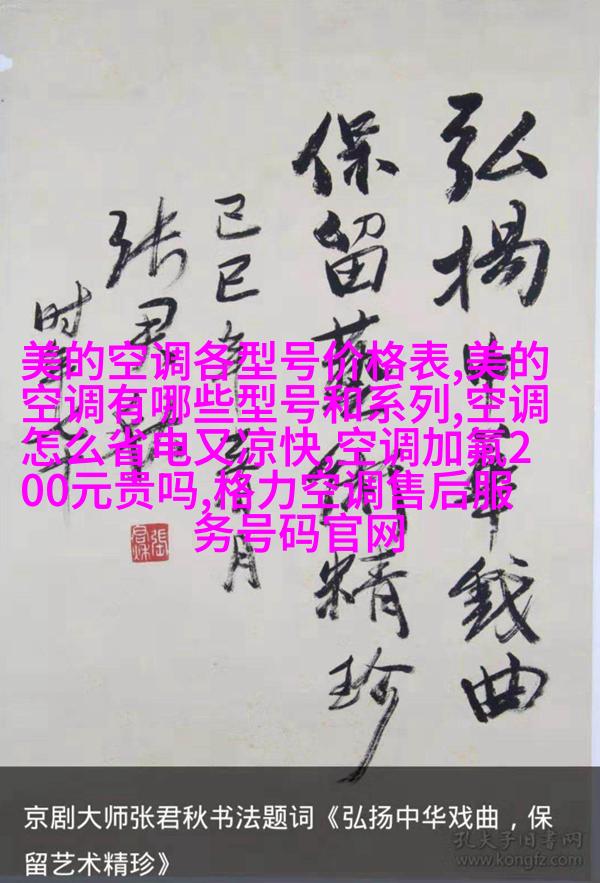 弘揚中華戏曲
保留艺術精珍
己巳年春月
张君秋
时年七十
美的空调各型号价格表,美的
空调有哪些型号和系列,空调
怎么省电又凉快,空调加氟2
00元贵吗,格力空调售后服
务号码官网
京剧大师张君秋书法题词《弘扬中华戏曲，保
留艺术精珍》
孔夫子旧书网
www.kongfz.com